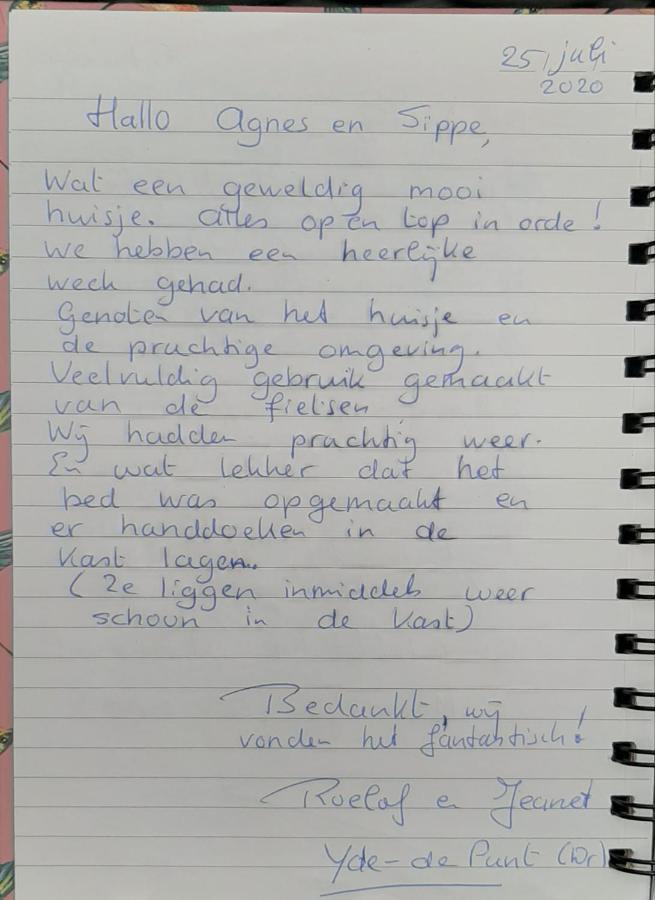 25 juli
2020
Hallo Agnes en Sippe,
Wat een geweldig mooi
huisje. alles op en top in orde!
We hebben een heerlijke
week gehad.
Genoten van het huisje en
de prachtige omgeving.
Veelvuldig gebruik gemaakt
van de fietsen
Wij hadden prachtig weer.
En wat lekker dat het
bed was opgemaakt en
er handdoeken in de
kast lagen.
(Ze liggen inmiddels weer
schoon in de kast)
Bedankt, wij
vonden het fantastisch!
Roelof en Jeanet
Yde-de Punt (Dr)